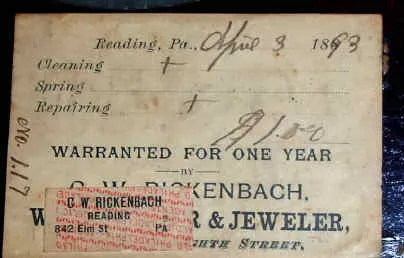 Reading, Pa., April 3 1893
Cleaning +
Spring
Repairing +
$1.00
No. 117
WARRANTED FOR ONE YEAR
BY
C. W. RICKENBACH,
& JEWELER,
STREET.
C. W. RICKENBACH
READING
842 Elm St PA